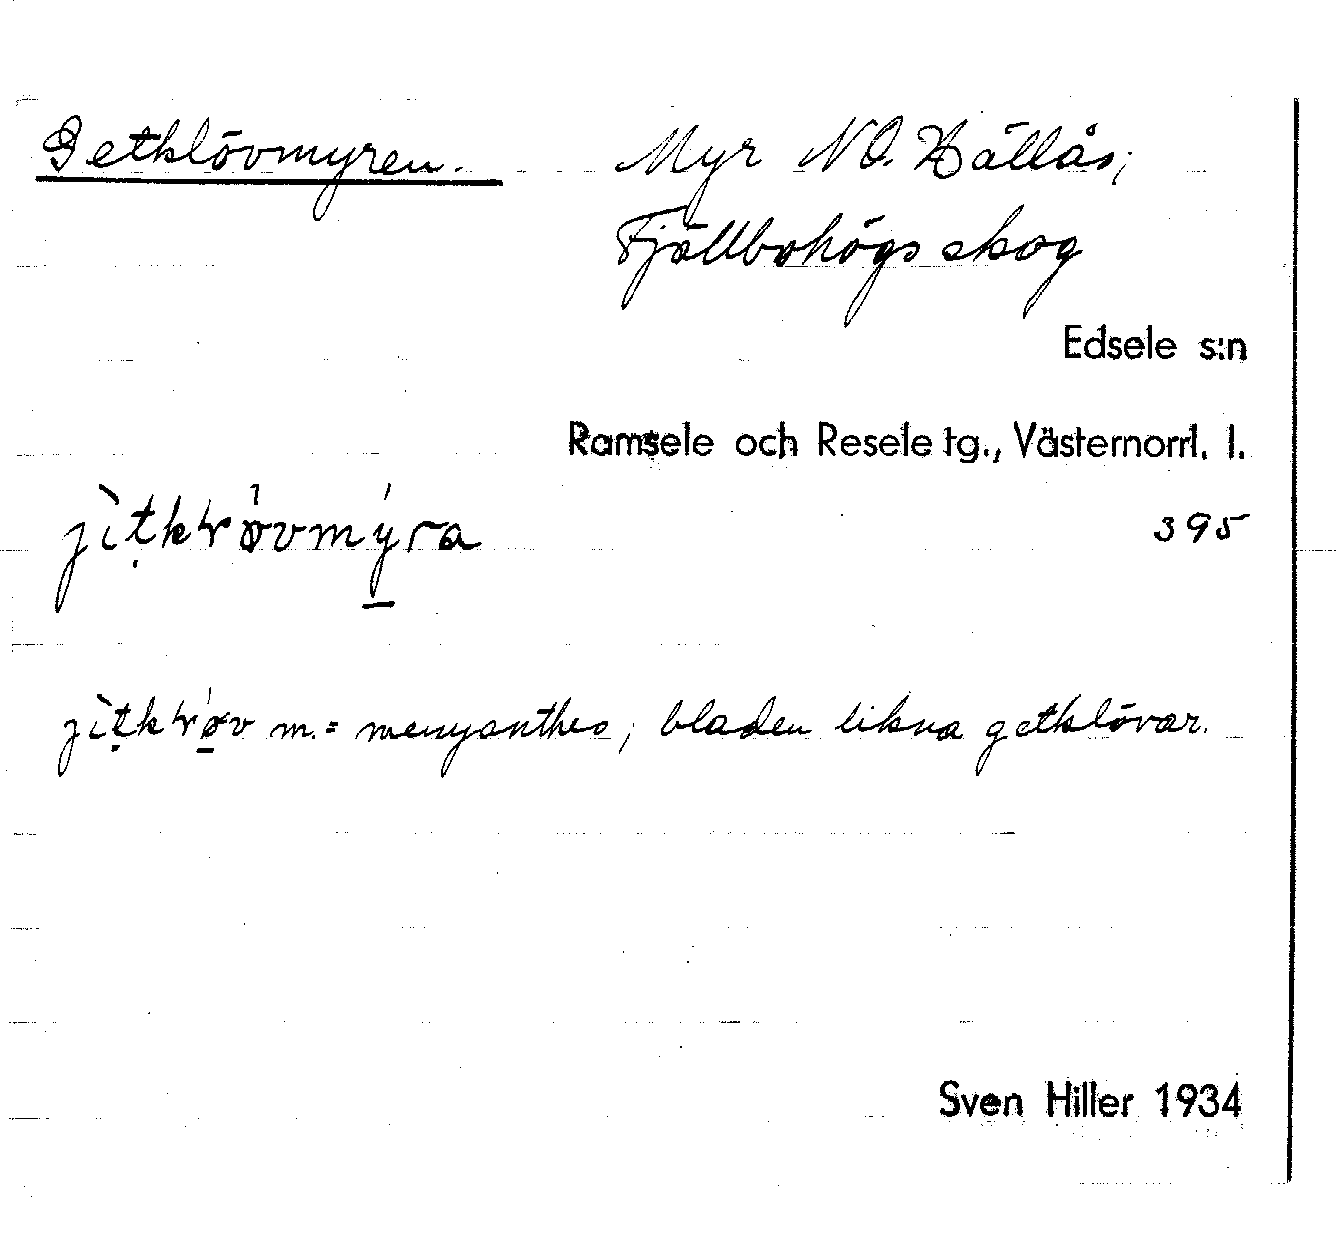 Getklövmyren. Myr NO. Hällås;
Fjällbohögs skog
Edsele s:n
Ramsele och Resele tg., Västernorrl. l.
395
menyanthes; bladen likna getklövar.
Sven Hiller 1934